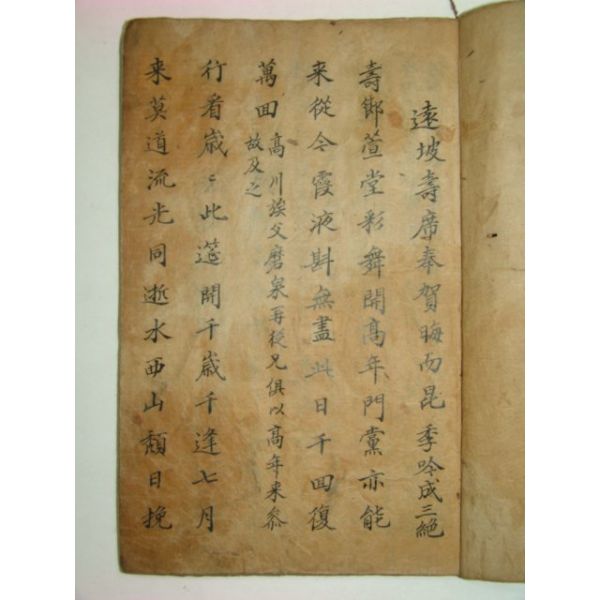 遠坡壽席奉賀晦而昆季吟成三絕
壽鄉萱堂彩舞開高年門黨亦能
来從今霞液斟無盡此日千回復
萬回
高川族父磨泉再從兄俱以高年来叅
故及之
行看歲〻此筵開千歲千逢七月
来莫道流光同逝水西山頹日挽